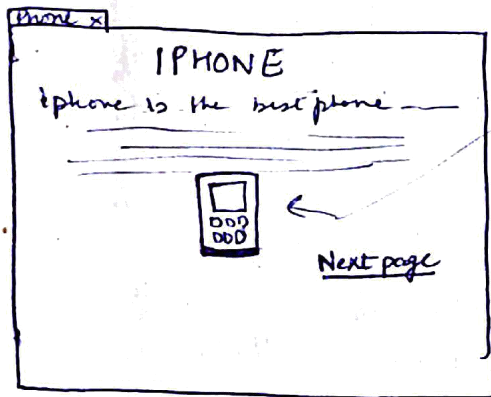 Phone x
IPHONE
iphone is the best phone
Next page